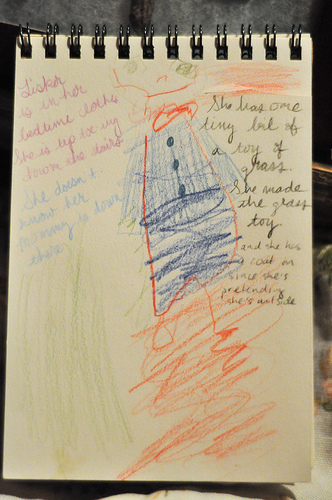 Sister
is in her
bedtime cloths
She is tip toeing
down the stairs
She doesn't
know her
mommy is down
there
She has one
tiny bit of
a toy of
grass.
She made
the grass
toy
and she has
a coat on
since she's
pretending
she's outside